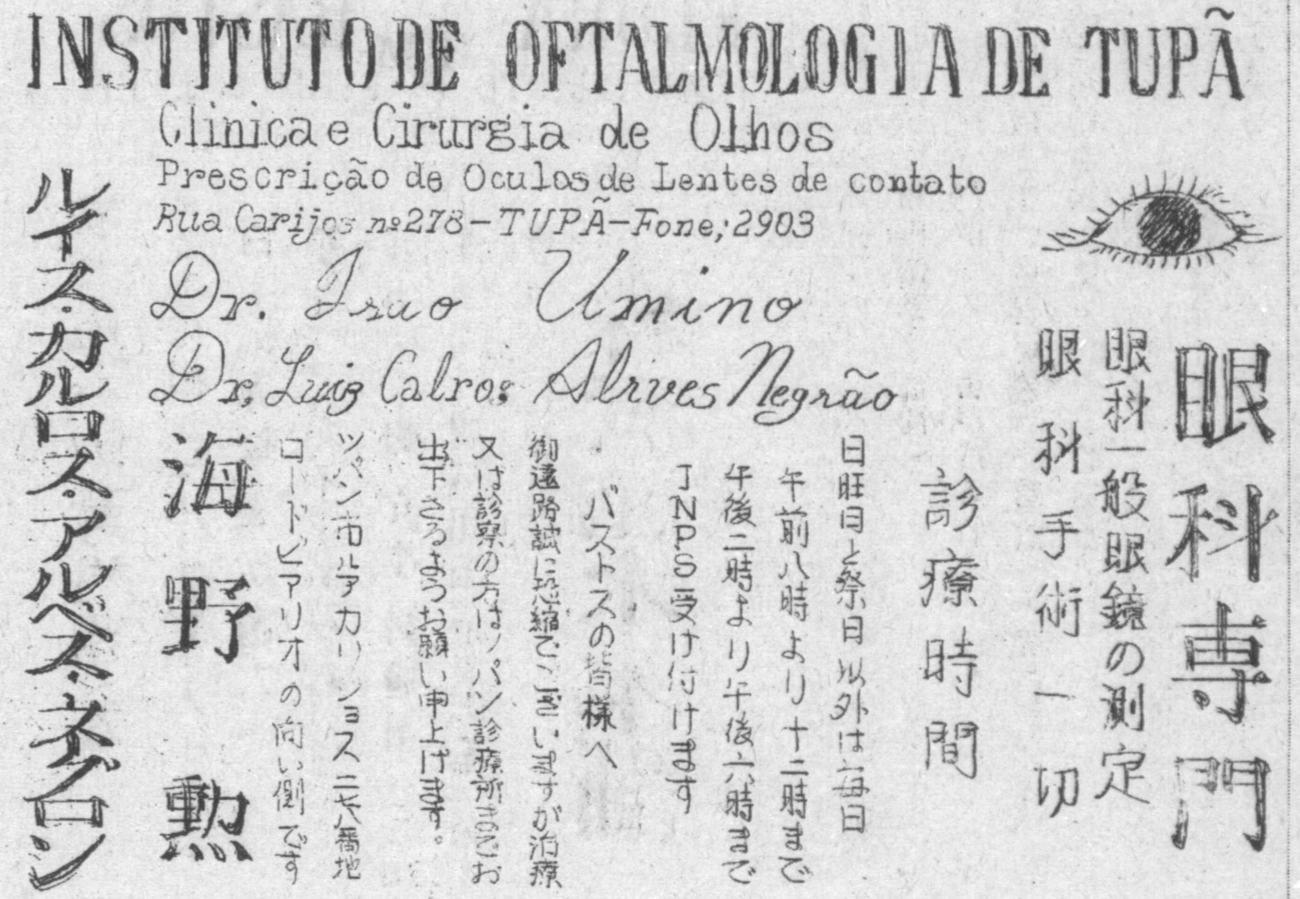 INSTITUTO DE OFTALMOLOGIA DE TUPÃ
Clinica e Cirurgia de Olhos
Prescrição de Oculos de Lentes de contato
Rua Carijos nº278-TUPÃ-Fone;2903
Dr. Isao Umino
Dr. Luiz Calros Alrves Negrão
眼科専門
眼科一般眼鏡の測定
眼科手術一切
診療時間
日旺日と祭日以外は毎日
午前八時より十二時まで
午後二時より午後六時まで
JNPS受け付けます
バストスの皆様へ
御遠路誠に恐縮でございますが治療
又は診察の方はツパン診療所までお
出下さるようお願い申上げます。
ツパン市ルアカリジョス二七八番地
ロードビアリオの向い側です
海野勲
ルイス・カルロス・アルベス・ネグロン